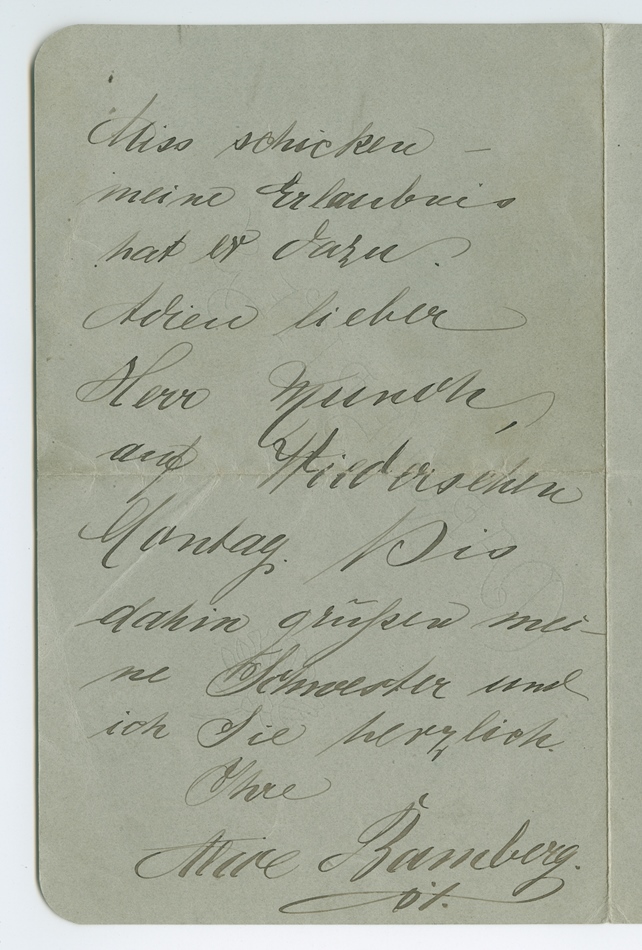 Miss schicken –
meine Erlaubnis
hat er dazu.
Adieu lieber
Herr Munch,
auf Wiedersehen
Montag. Bis
dahin grüßen mei-
ne Schwester und
ich Sie herzlich.
Ihre
Bamberg.